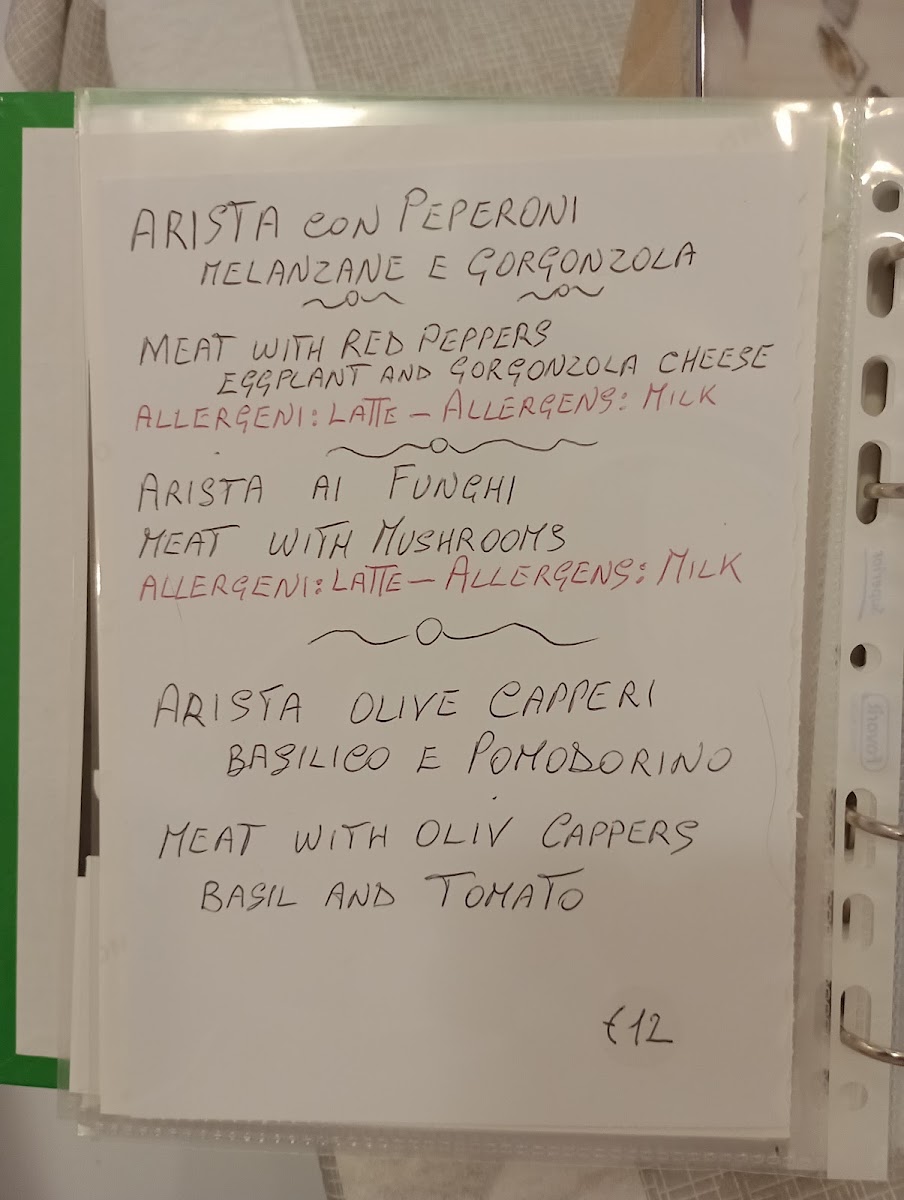 ARISTA CON PEPERONI
MELANZANE E GORGONZOLA
MEAT WITH RED PEPPERS
EGGPLANT AND GORGONZOLA CHEESE
ALLERGENI: LATTE - ALLERGENS: MILK
ARISTA AI FUNGHI
MEAT WITH MUSHROOMS
ALLERGENI: LATTE - ALLERGENS: MILK
ARISTA OLIVE CAPPERI
BASILICO E POMODORINO
MEAT WITH OLIV CAPPERS
BASIL AND TOMATO
€12
Superior
Favorit